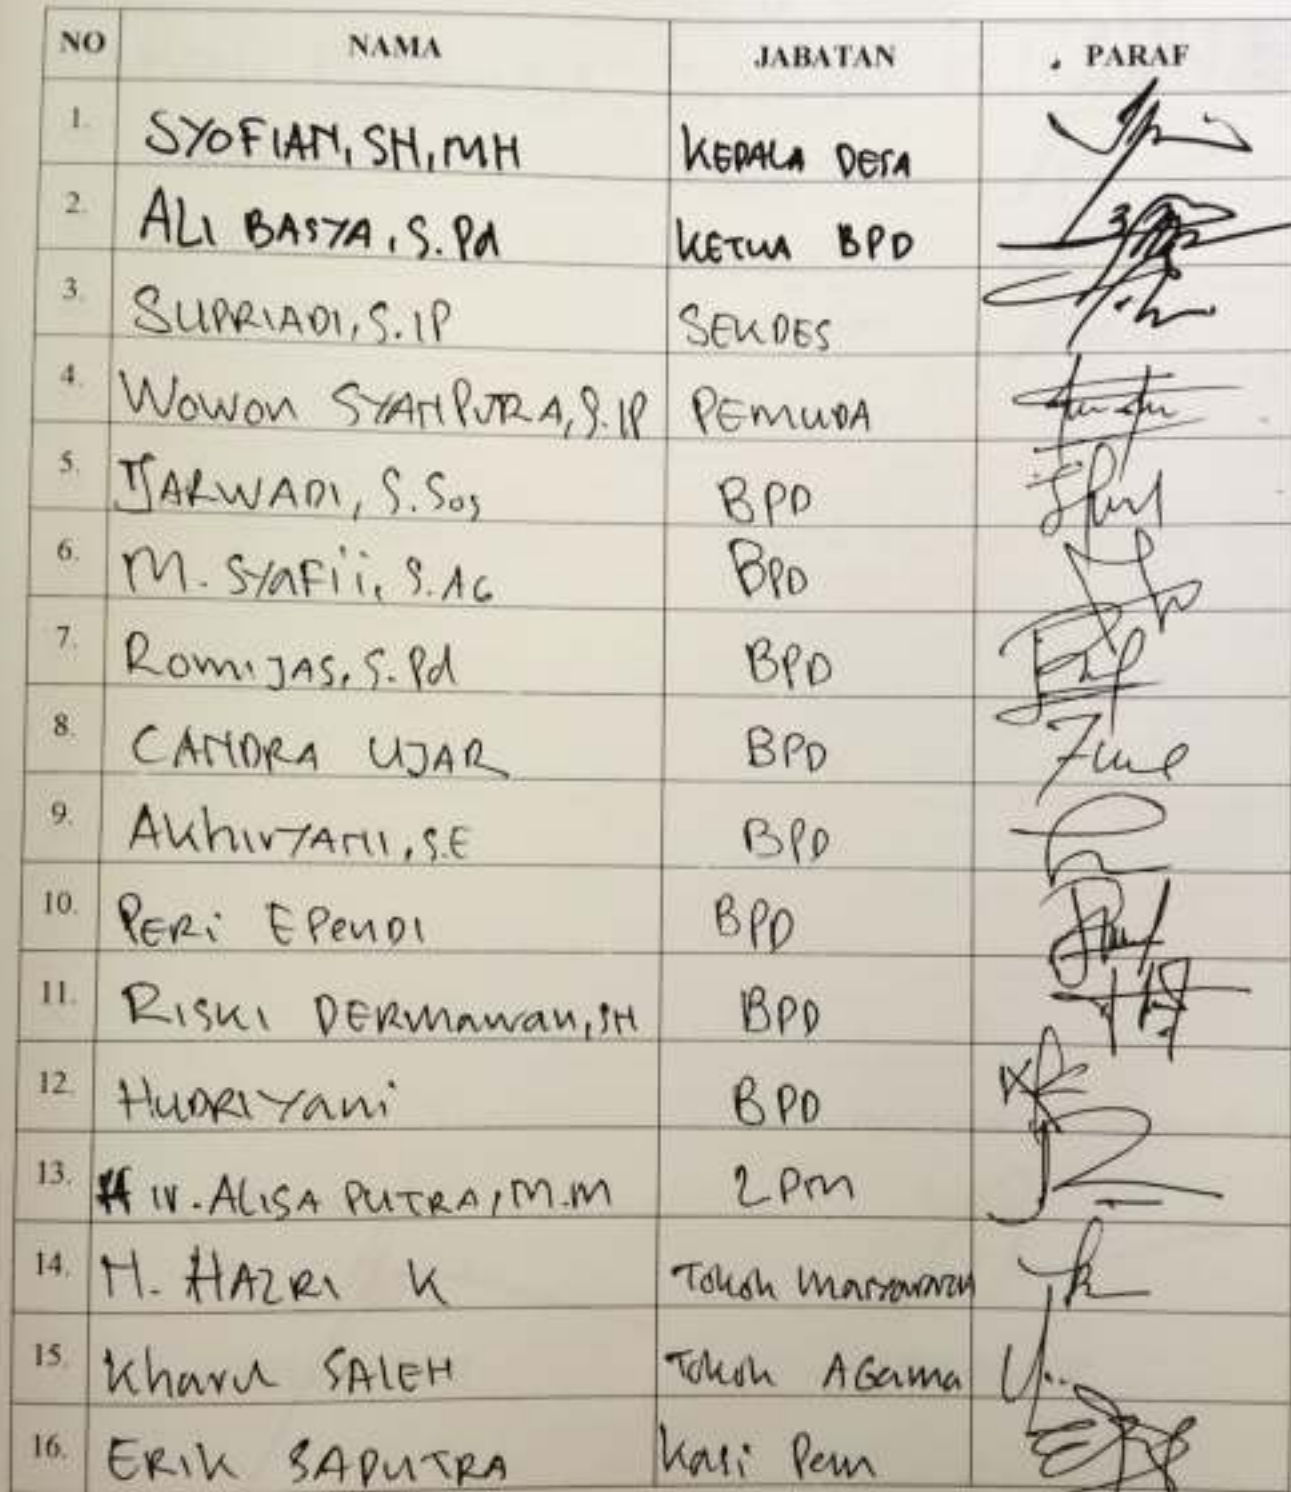 NO NAMA JABATAN PARAF
1. SYOFIAN, SH, MH KEPALA DESA
2. ALI BASYA, S.Pd KETUA BPD
3. SUPRIADI, S.IP SEKDES
4. Wowon SYAHPUTRA, S.IP PEMUDA
5. TJARWADI, S.Sos BPD
6. M. SYAFii, S.AG BPD
7. Romi JAS, S.Pd BPD
8. CANDRA UJAR BPD
9. AkhirYANI, S.E BPD
10. PERi EPENDI BPD
11. RISKI DERMAwan, SH BPD
12. HUDRIYani BPD
13. H Ir. ALISA PUTRA, M.M LPM
14. H. HAZRI K Tokoh
15. Kharul SALEH Tokoh AGama
16. ERIK SAPUTRA Kasi Pem